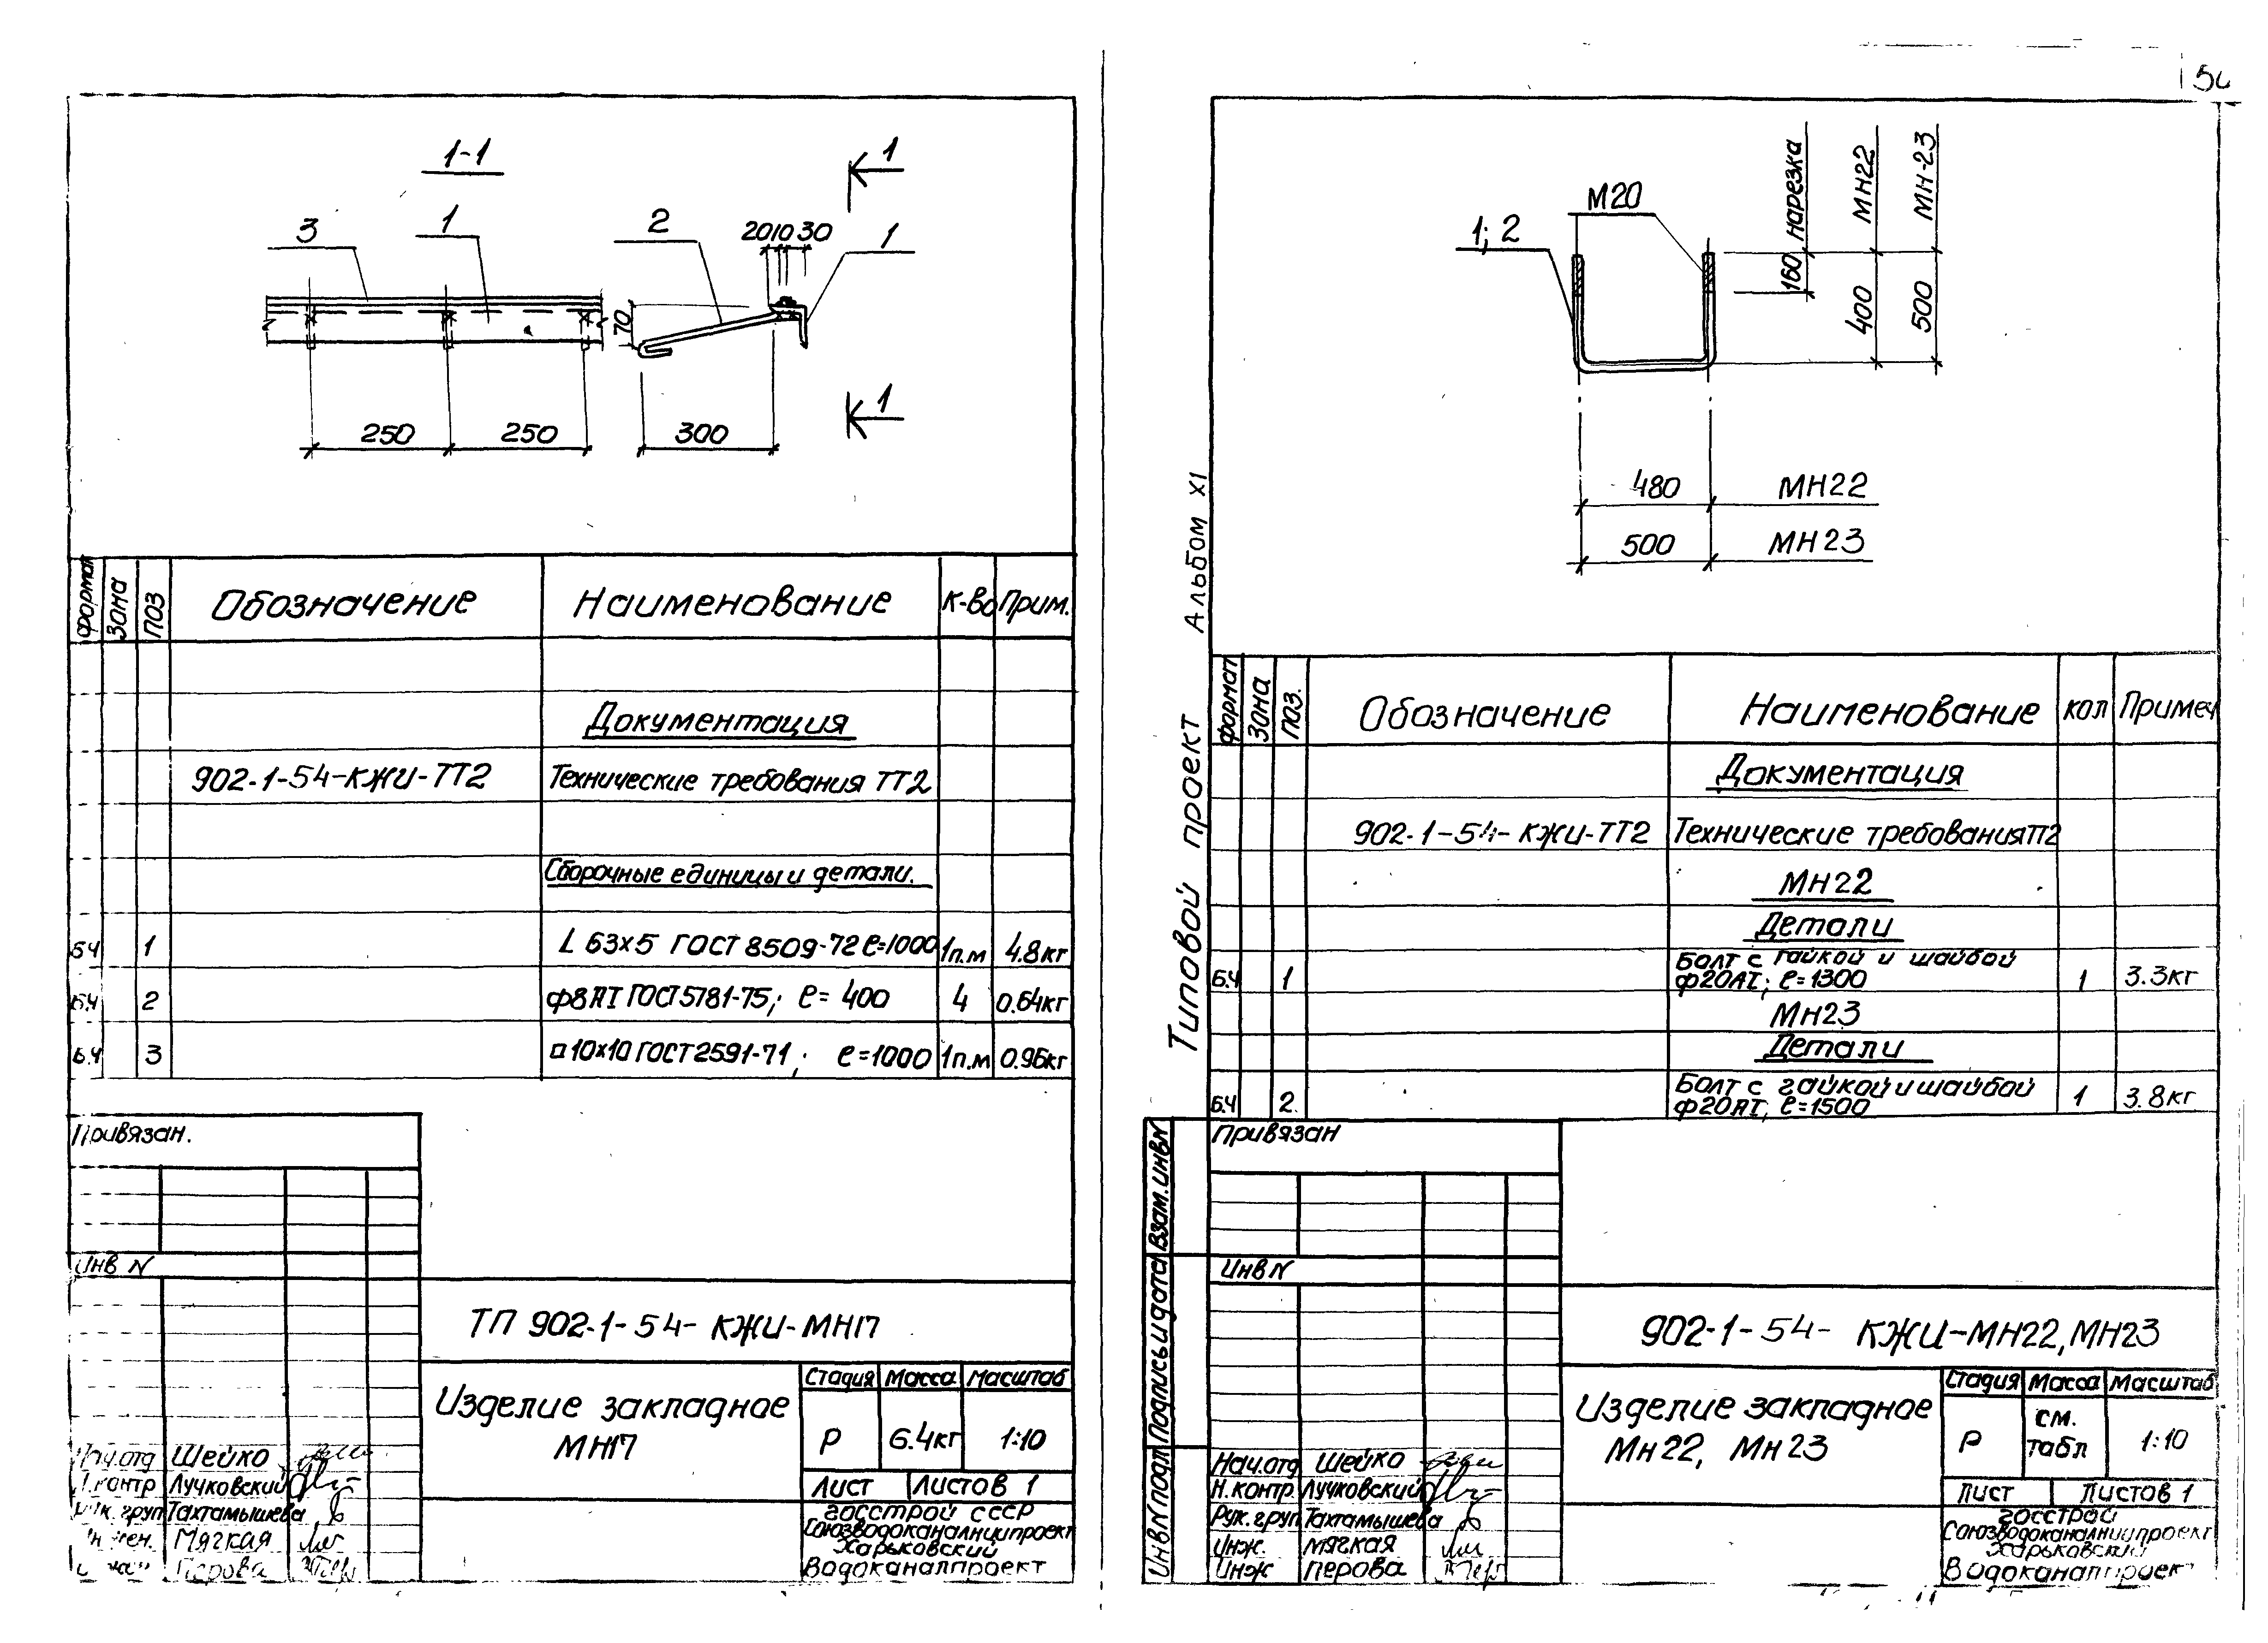 1-1
1
3
1
2
20 10 30
1
70
1
250
250
300
формат
Зона
Поз
Обозначение
Наименование
К-во
Прим.
Документация
902-1-54-КЖИ-ТТ2
Технические требования ТТ2
Сборочные единицы и детали.
Б.Ч
1
L 63х5 ГОСТ 8509-72 ℓ=1000
1п.м
4.8кг
Б.Ч
2
ф8АI ГОСТ 5781-75; ℓ= 400
4
0.64кг
Б.Ч
3
□10х10 ГОСТ 2591-71; ℓ=1000
1п.м
0.96кг
Привязан.
Инв N
ТП 902-1-54- КЖИ-МН17
Изделие закладное
МН17
Стадия
Масса
Масштаб
Р
6.4кг
1:10
Лист
Листов 1
Госстрой СССР
Союзводоканалниипроект
Харьковский
Водоканалпроект
Нач.отд
Шейко
Н.контр
Лучковский
Рук. груп
Тахтамышева
Мягкая
Перова
Альбом XI
Типовой проект
М20
1; 2
нарезка
160
МН22
400
МН-23
500
480
МН22
500
МН23
формат
Зона
Поз.
Обозначение
Наименование
Кол
Примеч
Документация
902-1-54-КЖИ-ТТ2
Технические требования ТТ2
Мн22
Детали
Б.Ч
1
Болт с гайкой и шайбой
ф20АI; ℓ=1300
1
3.3кг
Мн23
Детали
Б.Ч
2.
Болт с гайкой и шайбой
ф20АI; ℓ=1500
1
3.8кг
Взам.инвN
Подпись и дата
ИнвN подл
Привязан
Инв N
902-1-54- КЖИ-МН22, МН23
Изделие закладное
Мн22, Мн23
Стадия
Масса
Масштаб
Р
см.
табл
1:10
Лист
Листов 1
Госстрой
Союзводоканалниипроект
Харьковский
Водоканалпроект
Нач.отд
Шейко
Н.контр.
Лучковский
Рук. груп
Тахтамышева
Инж.
Мягкая
Инж
Перова